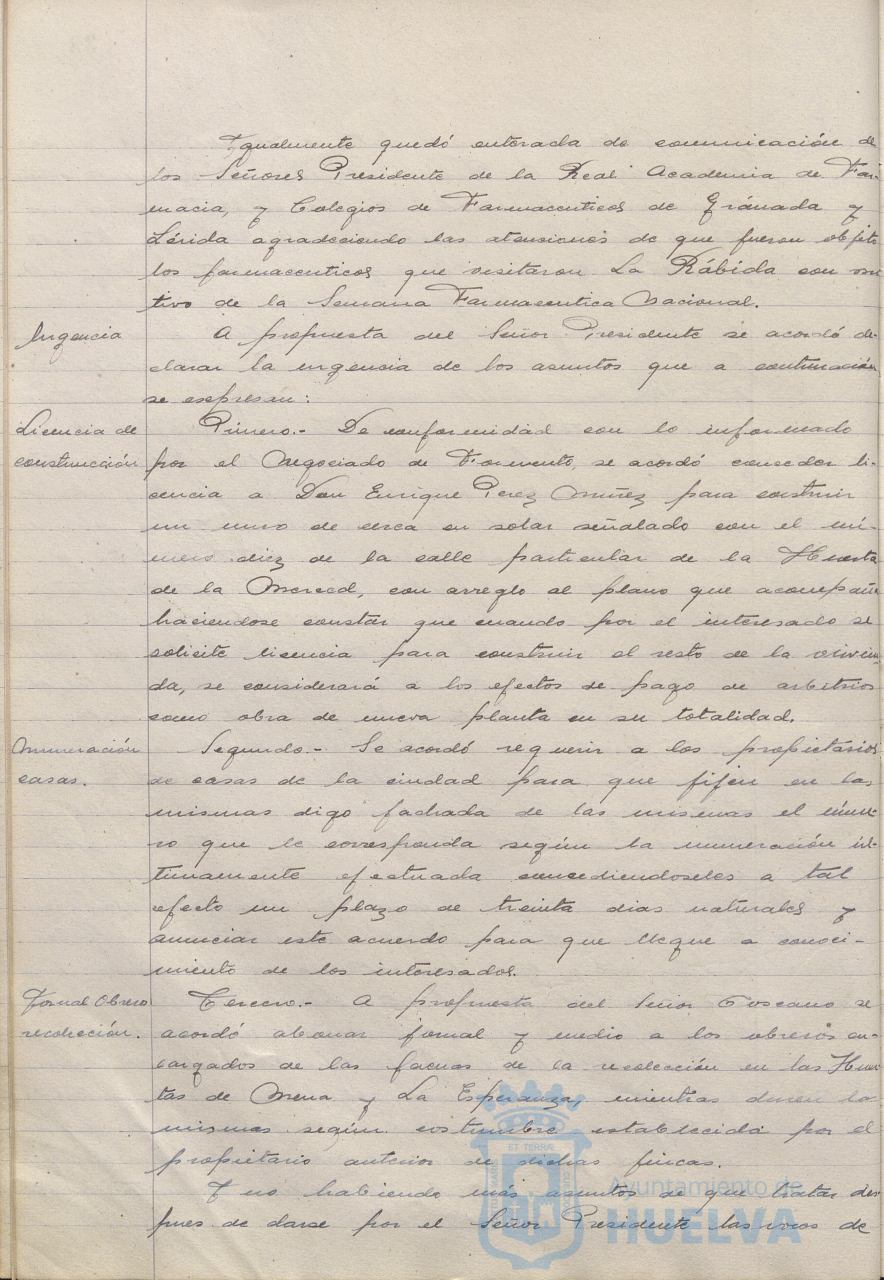 Igualmente quedó enterada de comunicación de
los Señores Presidente de la Real Academia de Far-
macia, y Colegios de Farmaceuticos de Gránada y
Lérida agradeciendo las atensiones de que fueron objeto
los farmaceuticos que visitaron La Rábida con mo-
tivo de la Semana Farmaceutica Nacional.
Urgencia
A propuesta del Señor Presidente se acordó de-
clarar la urgencia de los asuntos que a continuación
se espresan:
Licencia de
construcción
Primero.- De conformidad con lo informado
por el Negociado de Fomento, se acordó conceder li-
cencia a Don Enrique Perez Muñez para construir
un muro de cerca en solar señalado con el nú-
mero diez de la calle particular de la Huerta
de la Merced, con arreglo al plano que acompaña
haciendose constar que cuando por el interesado se
solicite licencia para construir el resto de la vivien-
da, se considerará a los efectos de pago de arbitrios
como obra de nueva planta en su totalidad.
Numeración
casas.
Segundo.- Se acordó requerir a los propietarios
de casas de la ciudad para que fijen en las
mismas digo fachada de las mismas el núme-
ro que le corresponda según la numeración úl-
timamente efectuada concediendoseles a tal
efecto un plazo de treinta dias naturales y
anunciar este acuerdo para que llegue a conoci-
miento de los interesados.
Jornal Obrero
recolección.
Tercero.- A propuesta del Señor Toscano se
acordó abonar jornal y medio a los obreros en-
cargados de las faenas de la recolección en las Huer-
tas de Mena y La Esperanza, mientras duren las
mismas según costumbre establecida por el
propietario anterior de dichas fincas.
Y no habiendo más asuntos de que tratar des-
pues de darse por el Señor Presidente las voces de
ET TERRÆ
Ayuntamiento de
HUELVA